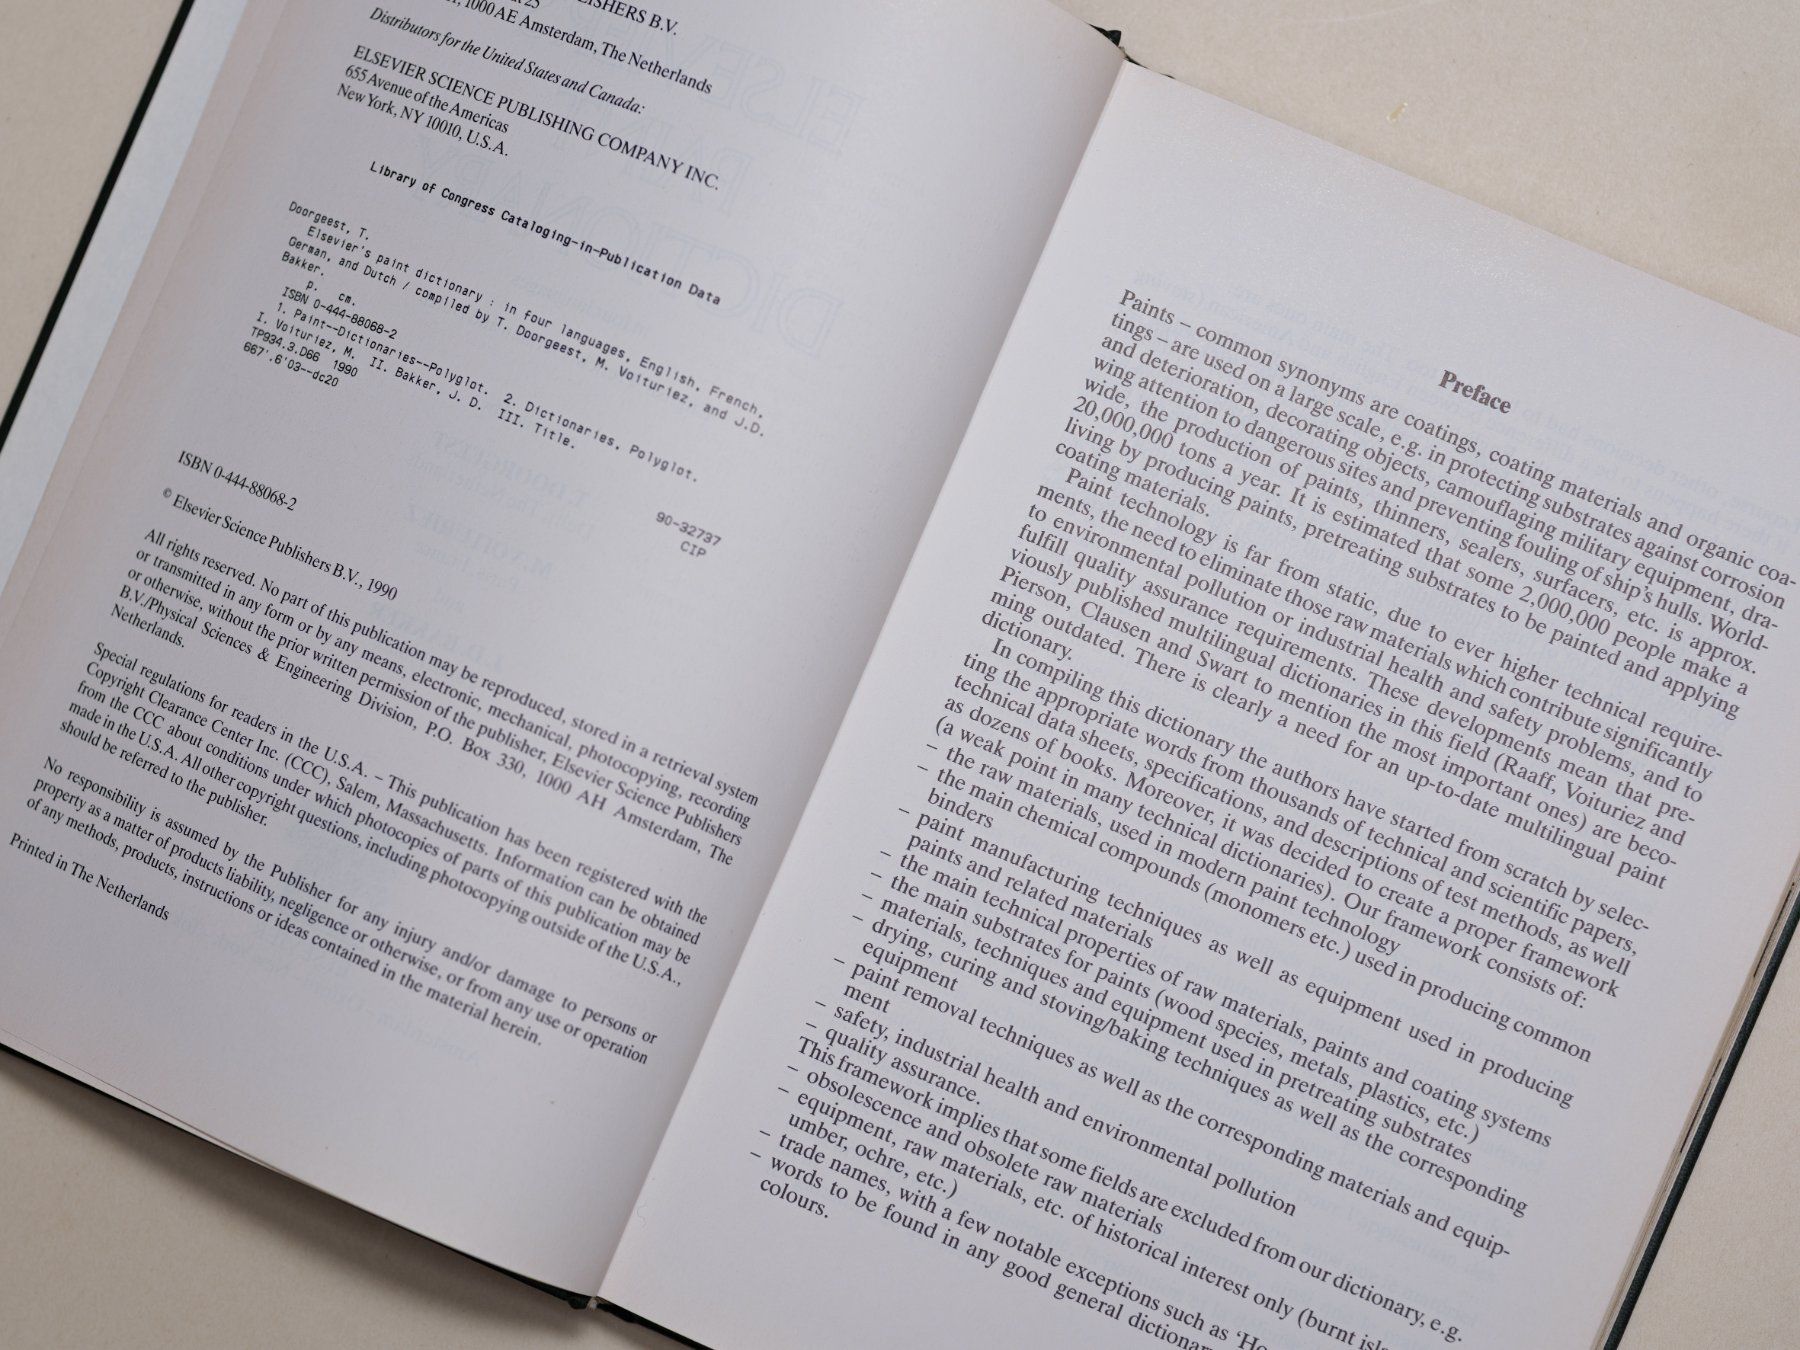 LISHERS B.V.
25
1000 AE Amsterdam, The Netherlands
Distributors for the United States and Canada:
ELSEVIER SCIENCE PUBLISHING COMPANY INC.
655 Avenue of the Americas
New York, NY 10010, U.S.A.
Library of Congress Cataloging-in-Publication Data
Doorgeest, T.
Elsevier's paint dictionary : in four languages, English, French,
German, and Dutch / compiled by T. Doorgeest, M. Voituriez, and J.D.
Bakker.
p. cm.
ISBN 0-444-88068-2
1. Paint--Dictionaries--Polyglot. 2. Dictionaries, Polyglot.
I. Voituriez, M. II. Bakker, J. D. III. Title.
TP934.3.D66 1990
667'.6'03--dc20
90-32737
CIP
ISBN 0-444-88068-2
© Elsevier Science Publishers B.V., 1990
All rights reserved. No part of this publication may be reproduced, stored in a retrieval system
or transmitted in any form or by any means, electronic, mechanical, photocopying, recording
or otherwise, without the prior written permission of the publisher, Elsevier Science Publishers
B.V./Physical Sciences & Engineering Division, P.O. Box 330, 1000 AH Amsterdam, The
Netherlands.
Special regulations for readers in the U.S.A. – This publication has been registered with the
Copyright Clearance Center Inc. (CCC), Salem, Massachusetts. Information can be obtained
from the CCC about conditions under which photocopies of parts of this publication may be
made in the U.S.A. All other copyright questions, including photocopying outside of the U.S.A.,
should be referred to the publisher.
No responsibility is assumed by the Publisher for any injury and/or damage to persons or
property as a matter of products liability, negligence or otherwise, or from any use or operation
of any methods, products, instructions or ideas contained in the material herein.
Printed in The Netherlands
Preface
Paints – common synonyms are coatings, coating materials and organic coa-
tings – are used on a large scale, e.g. in protecting substrates against corrosion
and deterioration, decorating objects, camouflaging military equipment, dra-
wing attention to dangerous sites and preventing fouling of ship's hulls. World-
wide, the production of paints, thinners, sealers, surfacers, etc. is approx.
20,000,000 tons a year. It is estimated that some 2,000,000 people make a
living by producing paints, pretreating substrates to be painted and applying
coating materials.
Paint technology is far from static, due to ever higher technical require-
ments, the need to eliminate those raw materials which contribute significantly
to environmental pollution or industrial health and safety problems, and to
fulfill quality assurance requirements. These developments mean that pre-
viously published multilingual dictionaries in this field (Raaff, Voituriez and
Pierson, Clausen and Swart to mention the most important ones) are beco-
ming outdated. There is clearly a need for an up-to-date multilingual paint
dictionary.
In compiling this dictionary the authors have started from scratch by selec-
ting the appropriate words from thousands of technical and scientific papers,
technical data sheets, specifications, and descriptions of test methods, as well
as dozens of books. Moreover, it was decided to create a proper framework
(a weak point in many technical dictionaries). Our framework consists of:
– the raw materials, used in modern paint technology
– the main chemical compounds (monomers etc.) used in producing common
binders
– paint manufacturing techniques as well as equipment used in producing
paints and related materials
– the main technical properties of raw materials, paints and coating systems
– the main substrates for paints (wood species, metals, plastics, etc.)
– materials, techniques and equipment used in pretreating substrates
– drying, curing and stoving/baking techniques as well as the corresponding
equipment
– paint removal techniques as well as the corresponding materials and equip-
ment
– safety, industrial health and environmental pollution
– quality assurance.
This framework implies that some fields are excluded from our dictionary, e.g.
– obsolescence and obsolete raw materials
– equipment, raw materials, etc. of historical interest only (burnt
umber, ochre, etc.)
– trade names, with a few notable exceptions such as
– words to be found in any good general
colours.